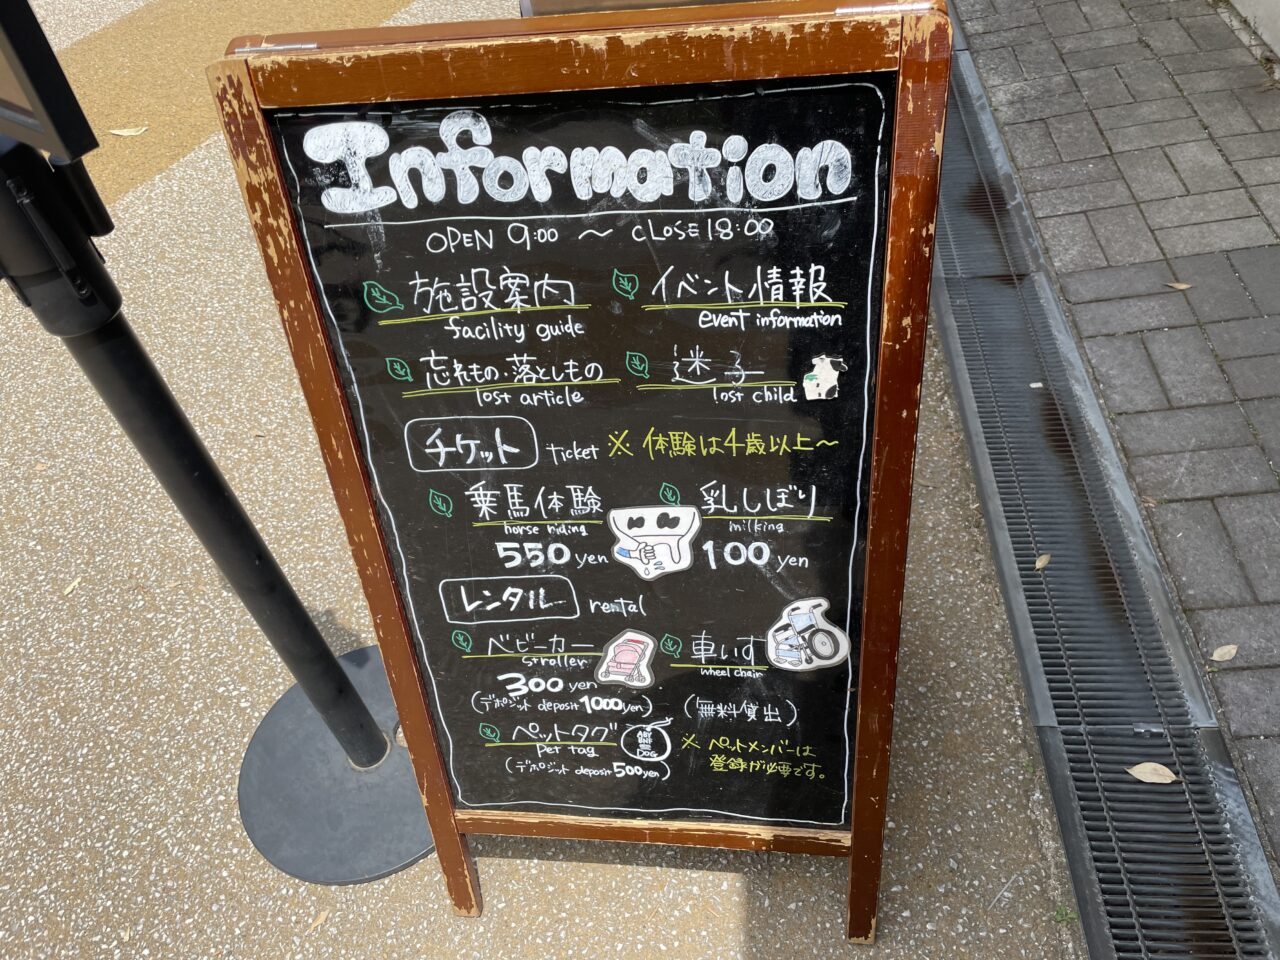 Information
OPEN 9:00 ～ CLOSE 18:00
施設案内 イベント情報
facility guide event information
忘れもの・落としもの 迷子
lost article lost child
チケット ticket ※ 体験は4歳以上～
乗馬体験 乳しぼり
horse riding milking
550 yen 100 yen
レンタル rental
ベビーカー 車いす
stroller wheel chair
300 yen
(デポジット deposit 1000yen) (無料貸出)
ペットタグ ※ ペットメンバーは
pet tag 登録が必要です。
(デポジット deposit 500yen)
DOG